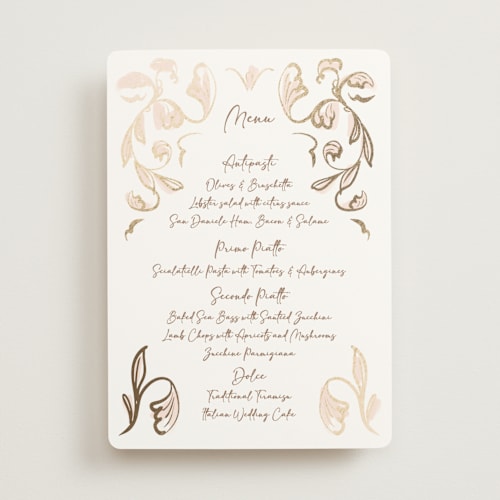 Menu
Antipasti
Olives & Bruschetta
Lobster salad with citrus sauce
San Daniele Ham, Bacon & Salame
Primo Piatto
Scialatielli Pasta with Tomatoes & Aubergines
Secondo Piatto
Baked Sea Bass with Sauteed Zucchini
Lamb Chops with Apricots and Mushrooms
Zucchine Parmigiana
Dolce
Traditional Tiramisu
Italian Wedding Cake